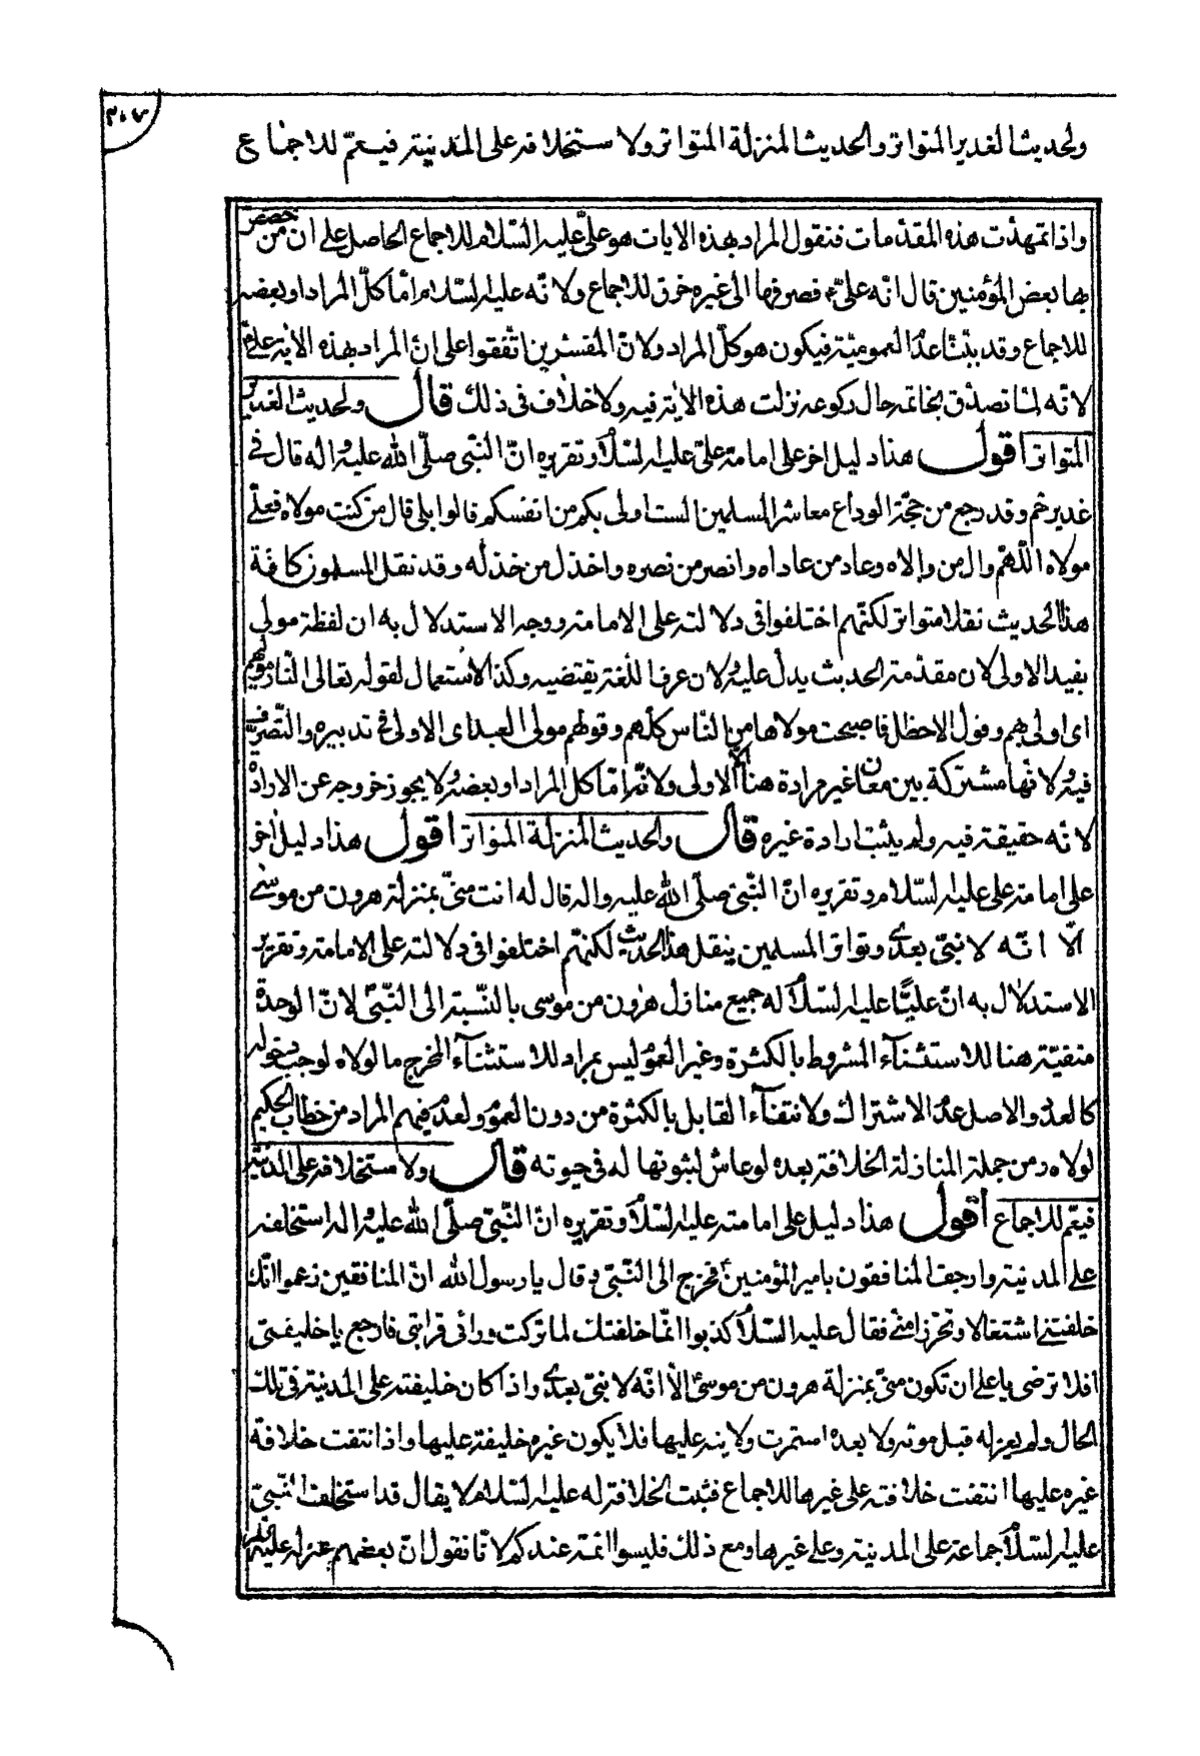 ٢٠٧
ولحديث الغدير المتواتر والحديث المنزلة المتواتر ولاستخلافه على المدينة فيعم للاجماع
واذا تمهدت هذه المقدمات فنقول المراد بهذه الايات هو علىّ عليه السّلام للاجماع الحاصل على ان من خصص
بها بعض المؤمنين قال انّه علىّ ع فصرفها الى غيره خرق للاجماع ولانّه عليه السّلام امّا كلّ المراد او بعضه
للاجماع وقد بيّنا عدم العموميّة فيكون هو كلّ المراد ولانّ المفسّرين اتّفقوا على انّ المراد بهذه الاية علىّ
لانّه لمّا تصدّق بخاتمه حال ركوعه نزلت هذه الاية فيه ولا خلاف فى ذلك قال ولحديث الغدير
المتواتر اقول هذا دليل اخر على امامة علىّ عليه السّلام وتقريره انّ النّبى صلّى الله عليه واله قال فى
غدير خم وقد رجع من حجّة الوداع معاشر المسلمين الست اولى بكم من انفسكم قالوا بلى قال من كنت مولاه فعلىّ
مولاه اللّهمّ وال من والاه وعاد من عاداه وانصر من نصره واخذل من خذله وقد نقل المسلمون كافّة
هذا الحديث نقلا متواترا لكنّهم اختلفوا فى دلالته على الامامة ووجه الاستدلال به ان لفظة مولى
يفيد الاولى لان مقدّمة الحديث يدلّ عليه ولان عرف اللّغة يقتضيه وكذا الاستعمال لقوله تعالى النّار موليهم
اى اولى بهم وقول الاخطل فاصبحت مولاها من النّاس كلّهم وقولهم مولى العبد اى الاولى فى تدبيره والتّصرف
فيه ولانّها مشتركة بين معان غير مرادة هنا الّا الاولى ولانّه امّا كل المراد او بعضه ولا يجوز خروجه عن الارادة
لانّه حقيقة فيه ولم يثبت ارادة غيره قال ولحديث المنزلة المتواتر اقول هذا دليل اخر
على امامة على عليه السّلام وتقريره انّ النّبىّ صلّى الله عليه واله قال له انت منّى بمنزلة هرون من موسى
الّا انّه لا نبىّ بعدى وتواتر المسلمين ينقل هذا الحديث لكنّهم اختلفوا فى دلالته على الامامة وتقرير
الاستدلال به انّ عليّا عليه السّلام له جميع منازل هرون من موسى بالنّسبة الى النّبىّ لانّ الوحدة
منفيّة هنا للاستثناء المشروط بالكثرة وغير العموم ليس بمراد للاستثناء المخرج ما لولاه لوجب دخوله
كالعدد والاصل عدم الاشتراك ولانتفاء القابل بالكثرة من دون العموم ولعدم فهم المراد من خطاب الحكيم
لولاه ومن جملة المنازل الخلافة بعده لو عاش لثبوتها له فى حيوته قال ولاستخلافه على المدينة
فيعمّ للاجماع اقول هذا دليل على امامته عليه السّلام وتقريره انّ النّبى صلّى الله عليه واله استخلفه
على المدينة وارجف المنافقون بامير المؤمنين ع فخرج الى النّبىّ وقال يا رسول الله انّ المنافقين زعموا انّك
خلفتنى اشتغالا وتحرزا منّى فقال عليه السّلام كذبوا انّما خلفتك لما تركت ورائى فارجع يا خليفتى
افلا ترضى يا على ان تكون منّى بمنزلة هرون من موسى الّا انّه لا نبىّ بعدى واذا كان خليفته على المدينة فى تلك
الحال ولم يعزله قبل موته ولا بعده استمرت ولايته عليها فلا يكون غيره خليفة عليها واذا انتفت خلافة
غيره عليها انتفت خلافته على غيرها للاجماع فثبت الخلافة له عليه السّلام لا يقال قد استخلف النّبىّ
عليه السّلام جماعة على المدينة وعلى غيرها ومع ذلك فليسوا ائمّة عندكم لانّا نقول انّ بعضهم عزله عليه السّلام